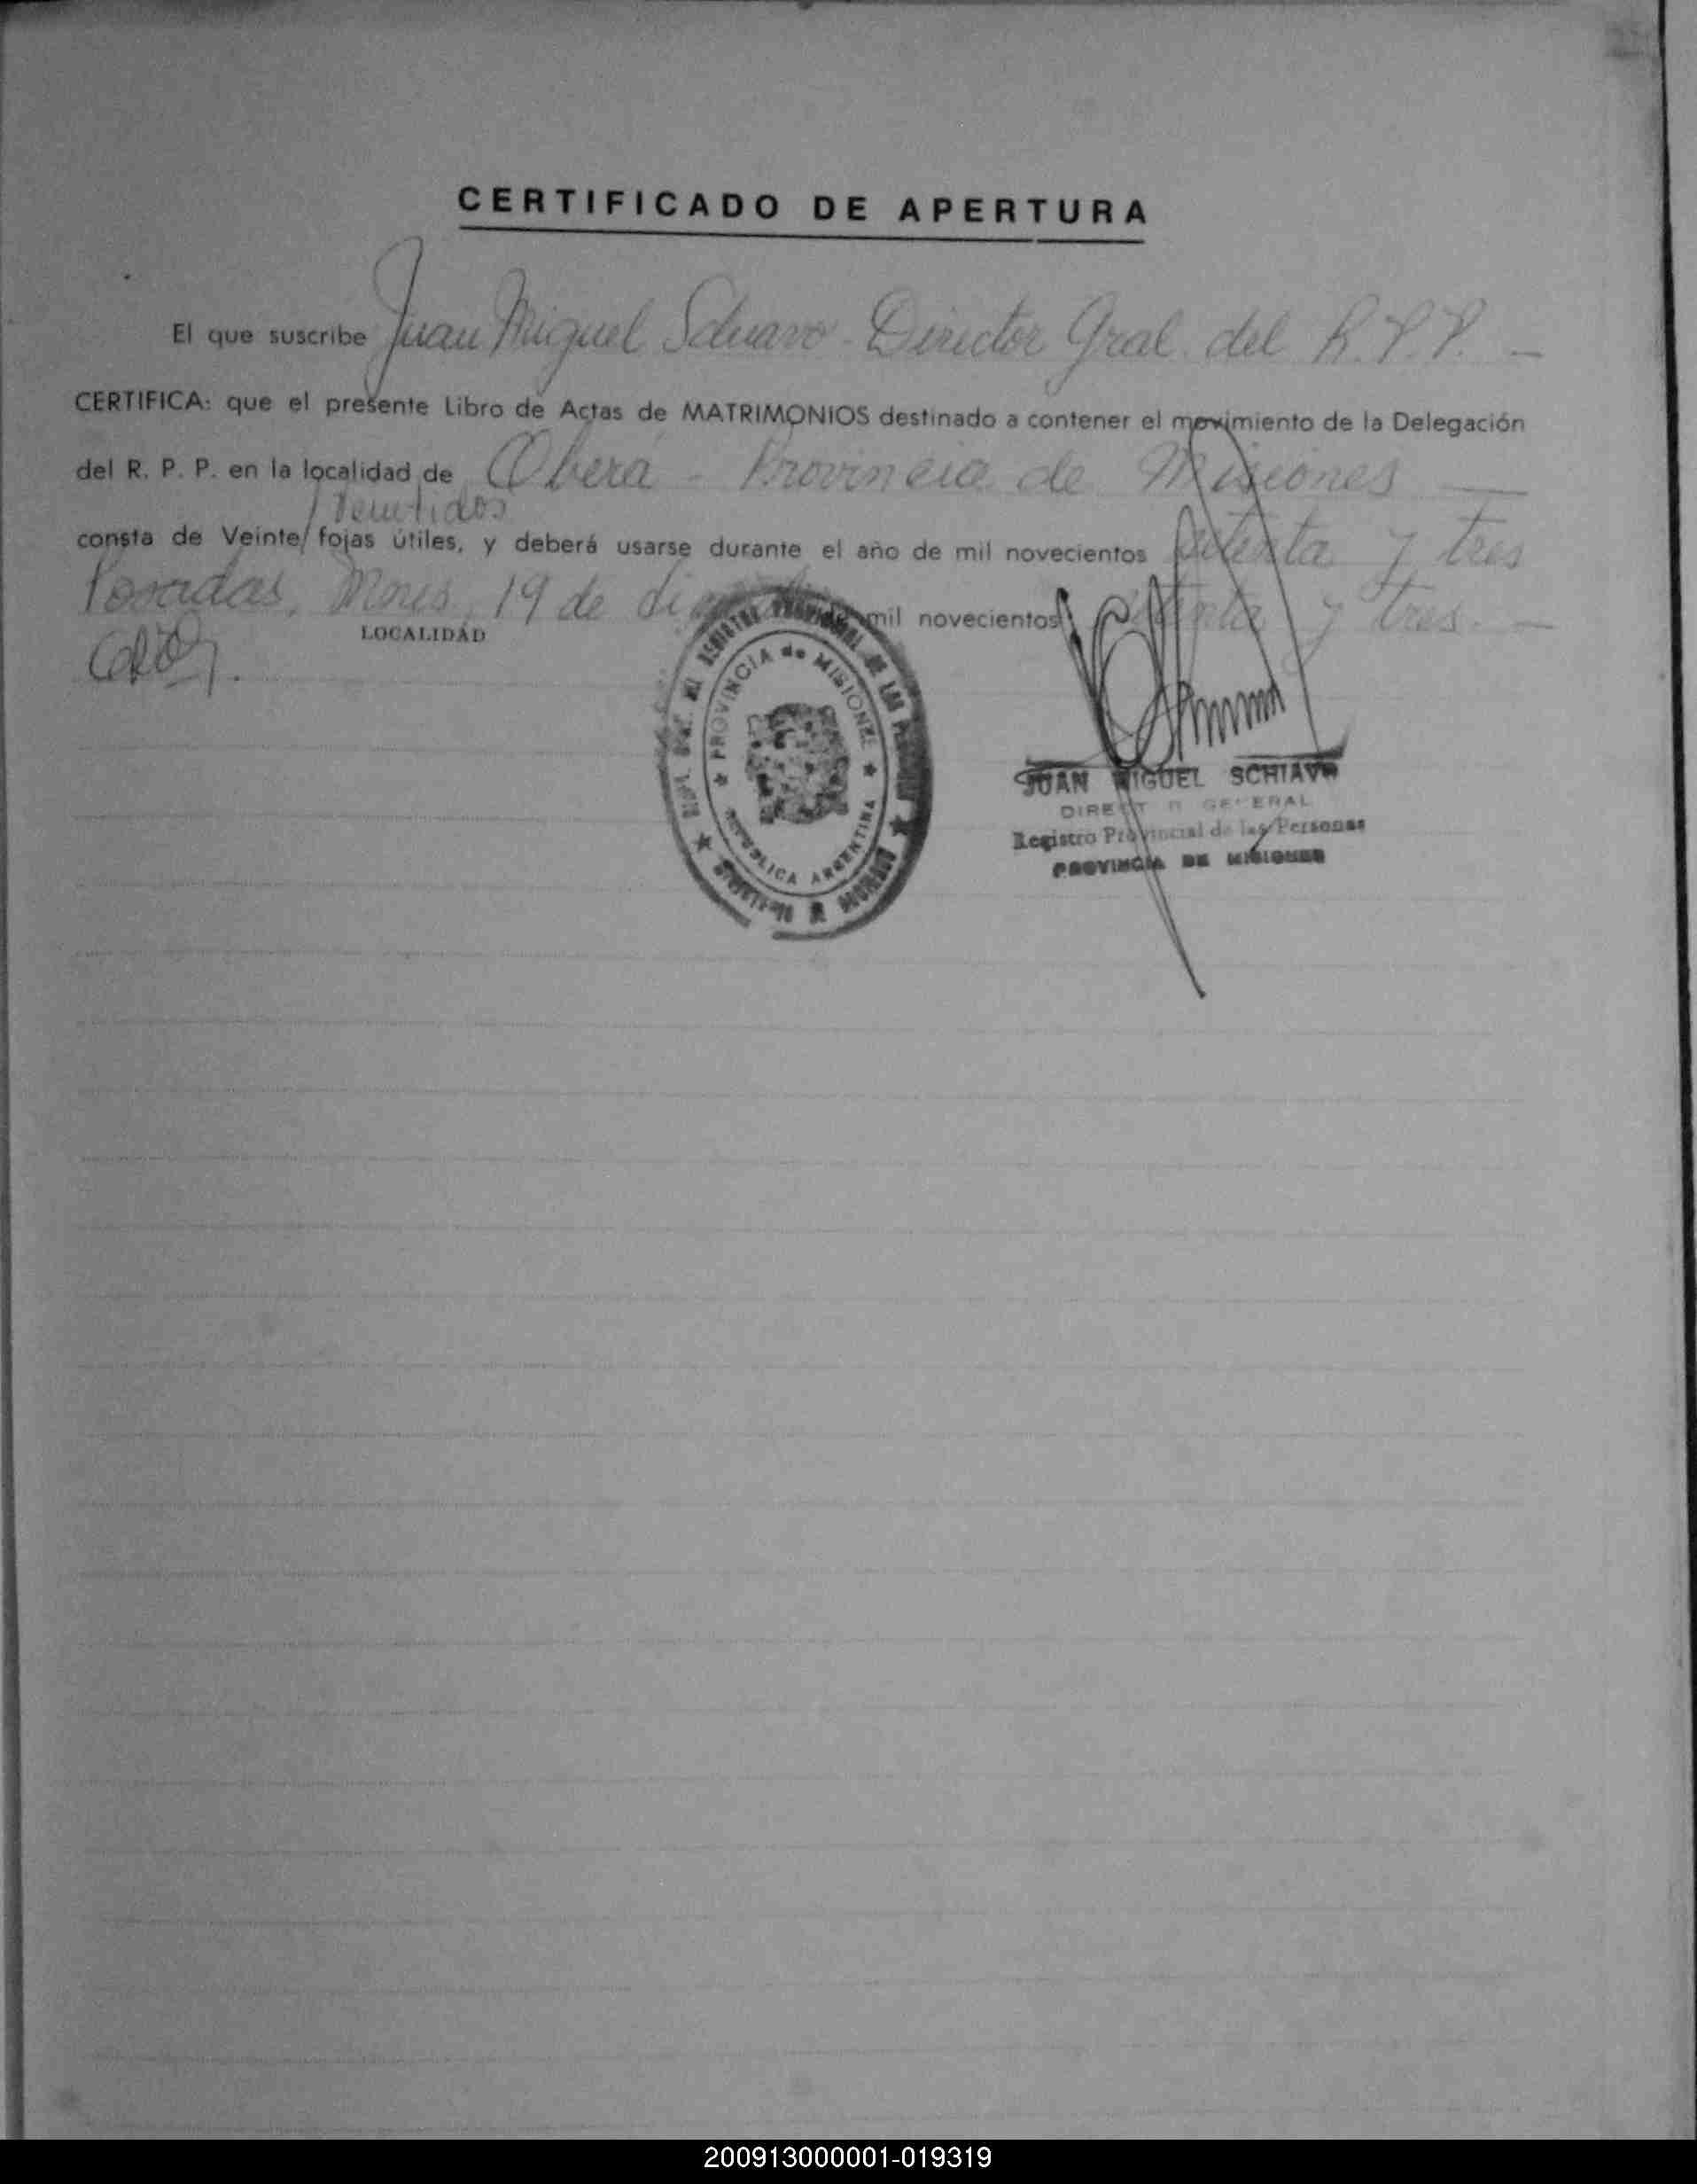 CERTIFICADO DE APERTURA
El que suscribe Juan Miguel Schiavo - Director Gral. del R.P.P. -
CERTIFICA: que el presente Libro de Actas de MATRIMONIOS destinado a contener el movimiento de la Delegación
del R. P. P. en la localidad de Oberá - Provincia de Misiones
/ Veintidos
consta de Veinte/ fojas útiles, y deberá usarse durante el año de mil novecientos setenta y tres
Posadas, Mnes, 19 de mil novecientos setenta y tres. -
LOCALIDAD
PROVINCIA de MISIONES
REPUBLICA ARGENTINA
REGISTRO PROVINCIAL DE LAS PERSONAS
JUAN MIGUEL SCHIAVO
DIRECTOR GENERAL
Registro Provincial de las Personas
PROVINCIA DE MISIONES
200913000001-019319